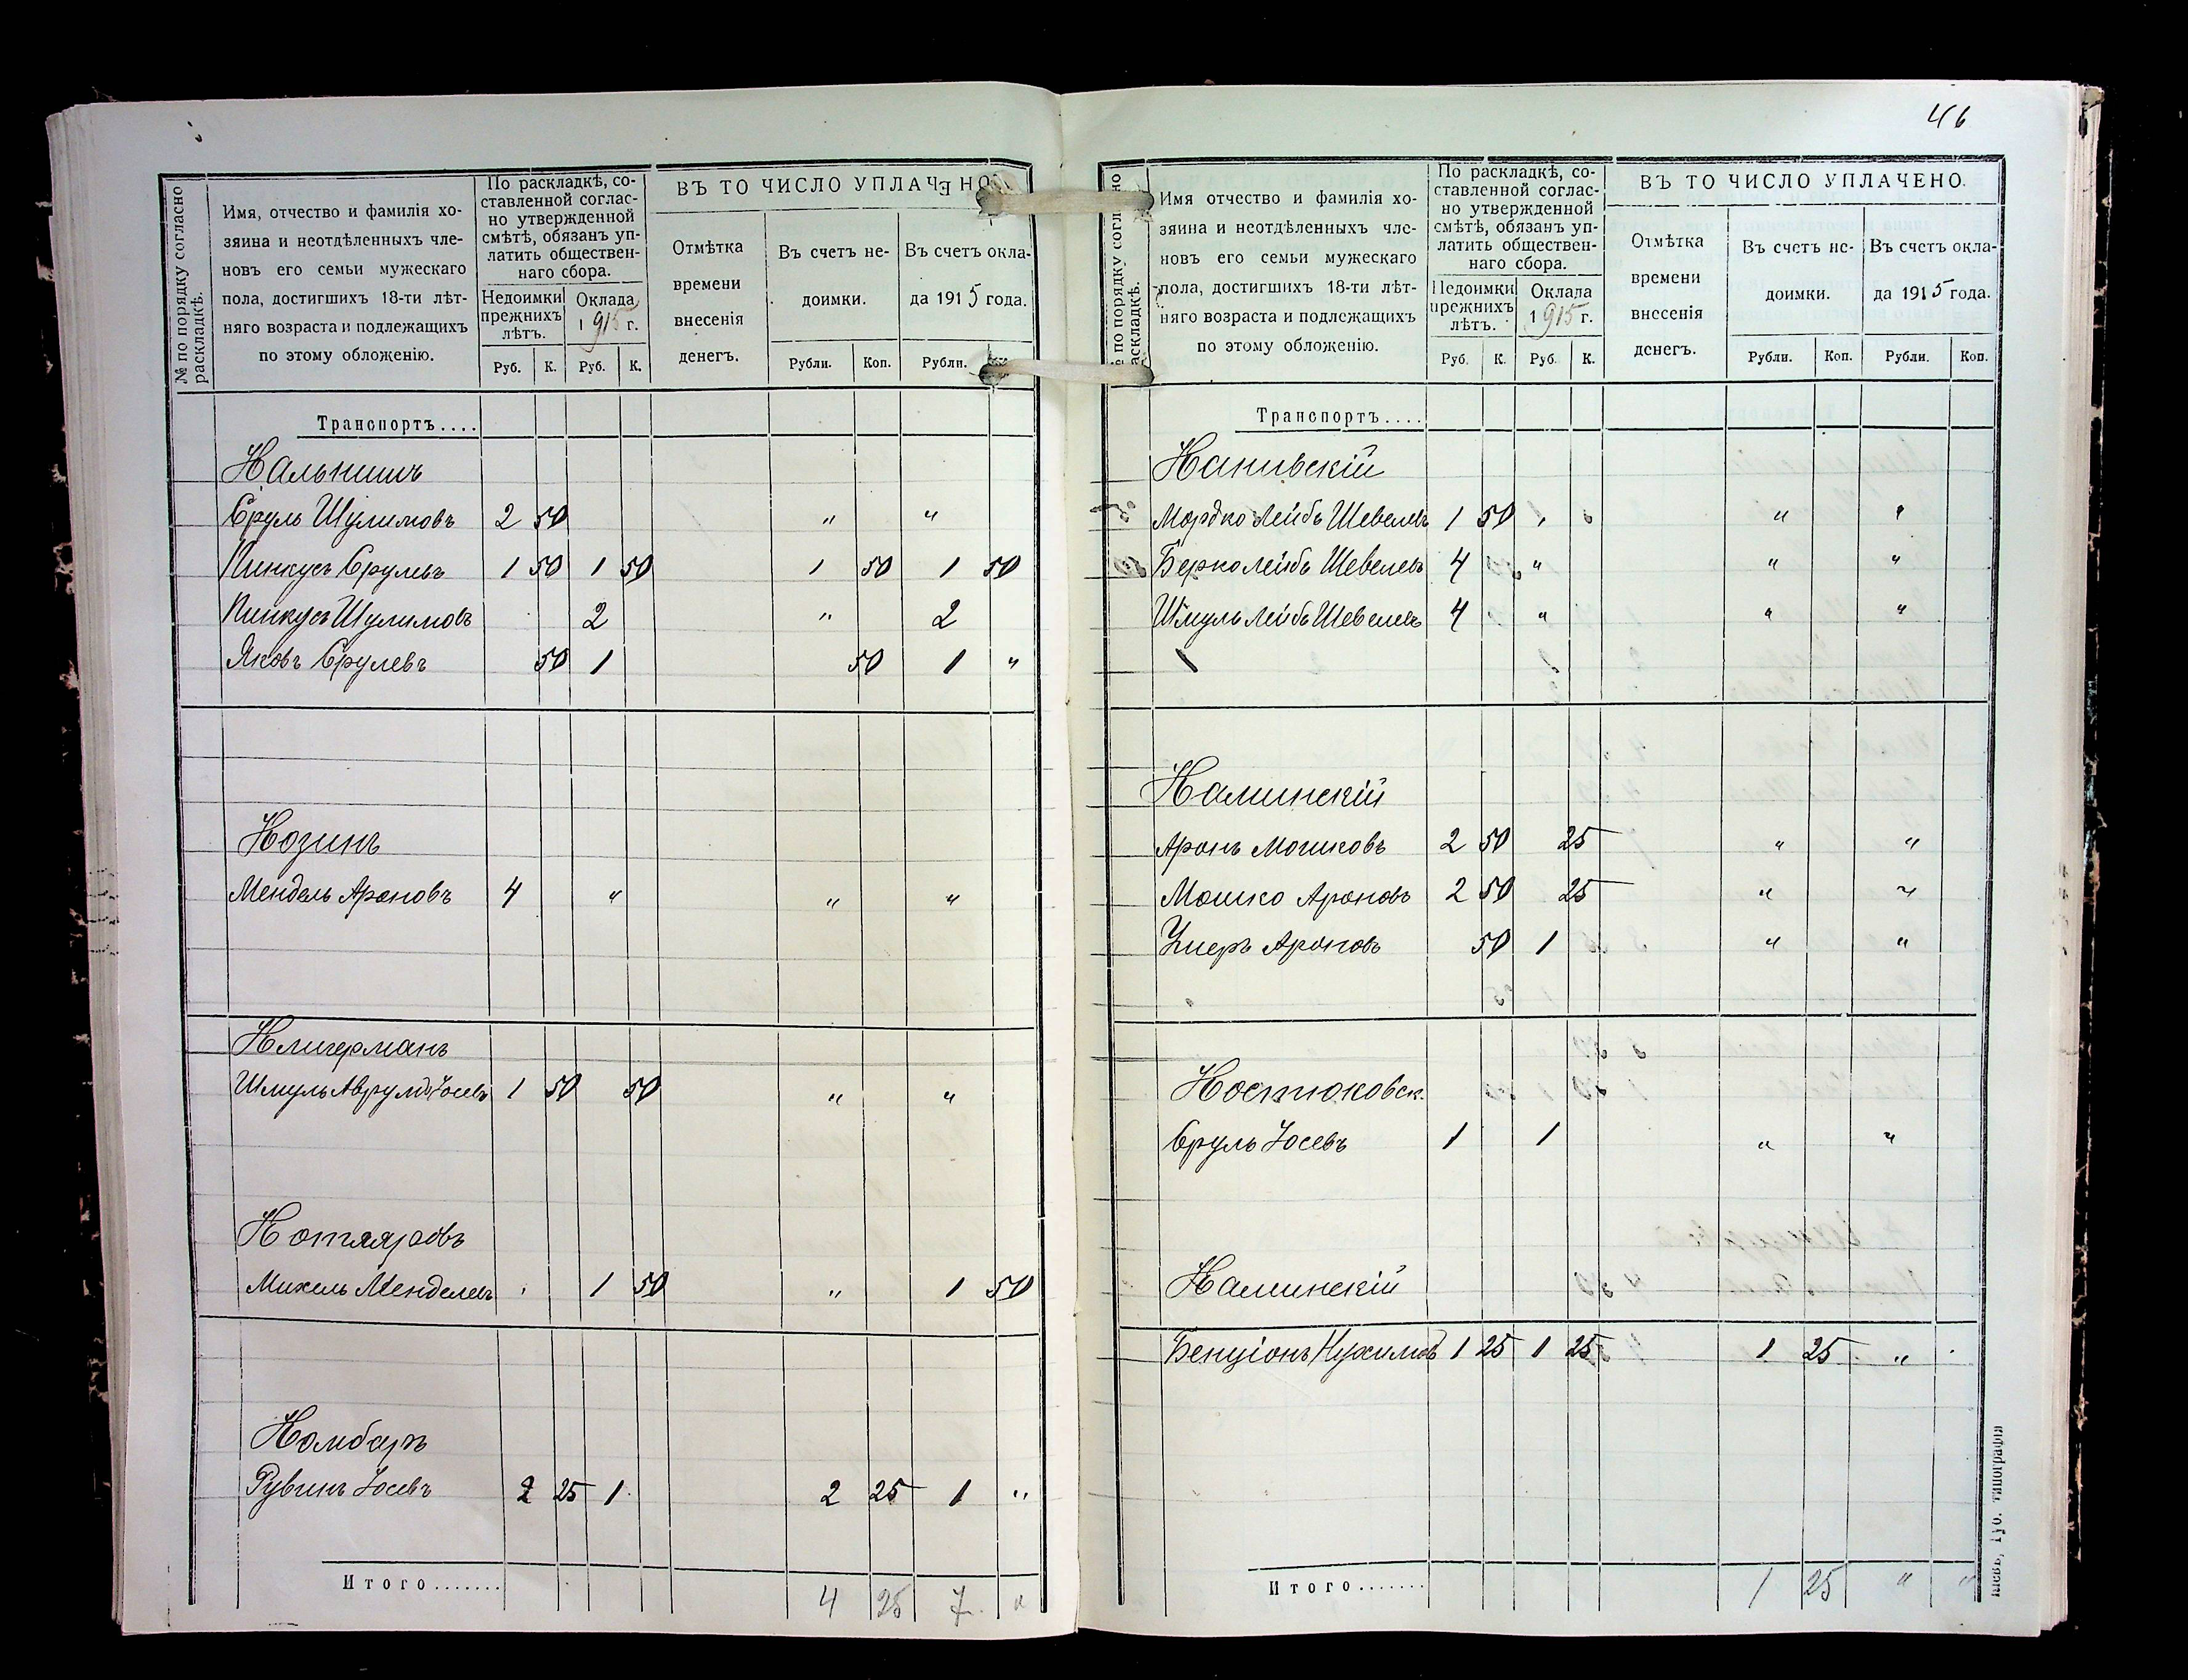 46
№ по порядку согласно раскладкѣ.
Имя, отчество и фамилія хо-
зяина и неотдѣленныхъ чле-
новъ его семьи мужескаго
пола, достигшихъ 18-ти лѣт-
няго возраста и подлежащихъ
по этому обложенію.
По раскладкѣ, со-
ставленной соглас-
но утвержденной
смѣтѣ, обязанъ уп-
латить обществен-
наго сбора.
Недоимки
прежнихъ
лѣтъ.
Оклада
1915 г.
Руб. К. Руб. К.
ВЪ ТО ЧИСЛО УПЛАЧЕНО
Отмѣтка
времени
внесенія
денегъ.
Въ счетъ не-
доимки.
Въ счетъ окла-
да 1915 года.
Рубли. Коп. Рубли.
Транспортъ....
Кальнишъ
Сруль Шулимовъ 2 50 " "
Пинкусъ Срулевъ 1 50 1 50 1 50 1 50
Пинкусъ Шулимовъ 2 " 2
Яковъ Срулевъ 50 1 50 1 "
Козинъ
Мендель Ароновъ 4 " " "
Клигерманъ
Шмуль Аврумъ Іосевъ 1 50 50 " "
Котляровъ
Михель Менделевъ 1 50 " 1 50
Комбаръ
Рувинъ Іосевъ 2 25 1 2 25 1 "
Итого....... 4 25 7 "
по порядку согласно
раскладкѣ.
Имя отчество и фамилія хо-
зяина и неотдѣленныхъ чле-
новъ его семьи мужескаго
пола, достигшихъ 18-ти лѣт-
няго возраста и подлежащихъ
по этому обложенію.
По раскладкѣ, со-
ставленной соглас-
но утвержденной
смѣтѣ, обязанъ уп-
латить обществен-
наго сбора.
Недоимки
прежнихъ
лѣтъ.
Оклада
1915 г.
Руб. К. Руб. К.
ВЪ ТО ЧИСЛО УПЛАЧЕНО.
Отмѣтка
времени
внесенія
денегъ.
Въ счетъ не-
доимки.
Въ счетъ окла-
да 1915 года.
Рубли. Коп. Рубли. Коп.
Транспортъ....
Каневскій
Мордко Лейбъ Шевелевъ 1 50 " "
Берко Лейбъ Шевелевъ 4 " " "
Шмуль Лейбъ Шевелевъ 4 " " "
Калинскій
Аронъ Мошковъ 2 50 25 " "
Мошко Ароновъ 2 50 25 " "
Ушеръ Ароновъ 50 1 " "
Костюковск.
Сруль Іосевъ 1 1 " "
Калинскій
Бенціонъ Нухимовъ 1 25 1 25 1 25 "
Итого....... 1 25 " "
Кіевъ, Губ. типографія